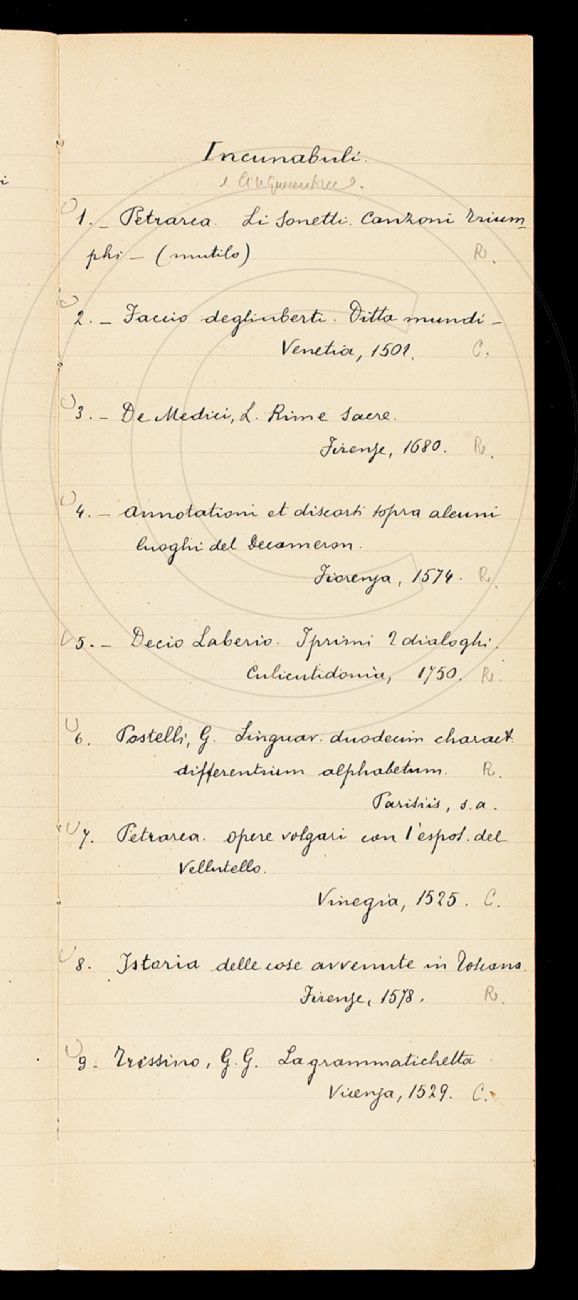 Incunabuli.
e Cinquecentine.
1. _ Petrarca. Li Sonetti. Canzoni Trium_
phi _ (mutilo) R.
2. _ Faccio degliuberti. Ditta mundi _
Venetia, 1501. C.
3. _ De Medici, L. Rime sacre.
Firenze, 1680. R.
4. _ Annotationi et discorsi sopra alcuni
luoghi del Decameron.
Fiorenza, 1574. R.
5. _ Decio Laberio. I primi 2 dialoghi.
Culicutidonia, 1750. R.
6. Postelli, G. Linguar. duodecim charact.
differentium alphabetum. R.
Parisiis, s.a.
7. Petrarca. Opere volgari con l'espos. del
Vellutello.
Vinegia, 1525. C.
8. Istoria delle cose avvenute in Toscana.
Firenze, 1578. R.
9. Trissino, G.G. La grammatichetta.
Vicenza, 1529. C.